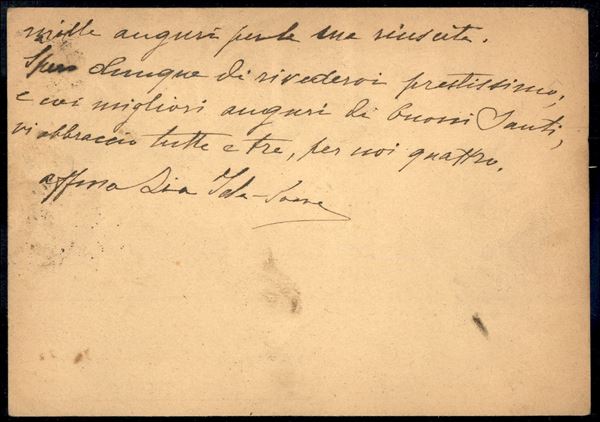 mille auguri per la sua riuscita.
Spero dunque di rivedervi prestissimo,
e coi migliori auguri di buoni Santi,
vi abbraccio tutte e tre, per noi quattro.
affma Zia Ida